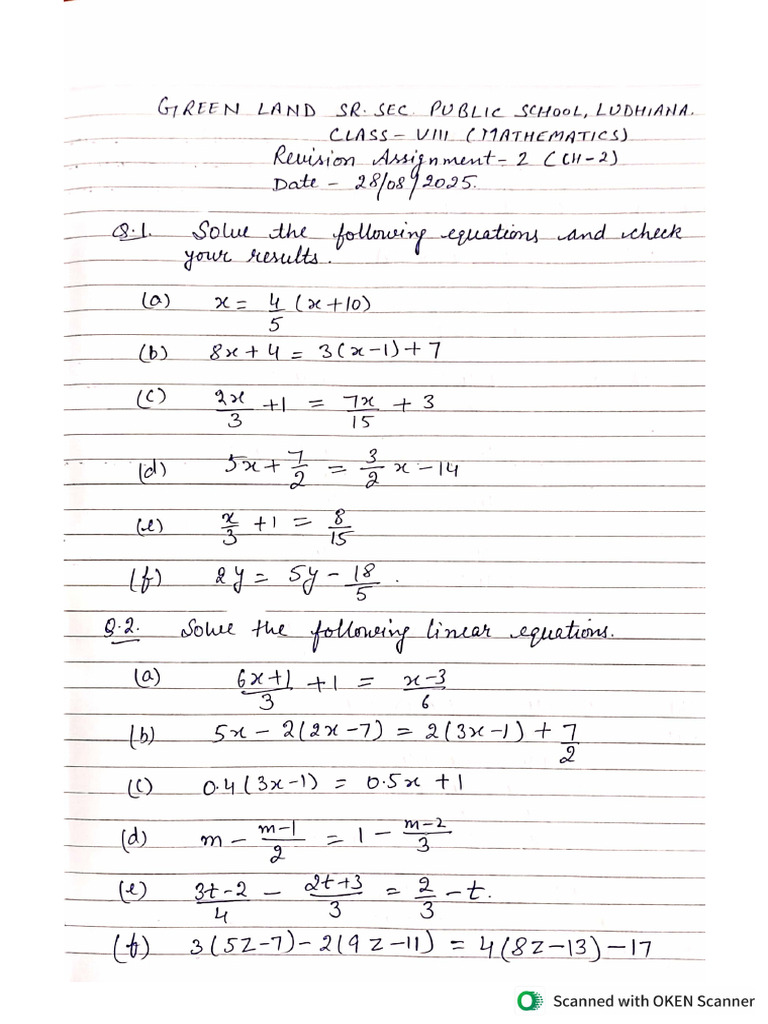 GREEN LAND SR. SEC. PUBLIC SCHOOL, LUDHIANA.
CLASS - VIII (MATHEMATICS)
Revision Assignment - 2 (CH-2)
Date - 28/08/2025.
Q.1. Solve the following equations and check
your results.
(a) x = 4/5 (x+10)
(b) 8x + 4 = 3(x-1) + 7
(c) 2x/3 + 1 = 7x/15 + 3
(d) 5x + 7/2 = 3/2 x - 14
(e) x/3 + 1 = 8/15
(f) 2y = 5y - 18/5.
Q.2. Solve the following linear equations.
(a) 6x+1/3 + 1 = x-3/6
(b) 5x - 2(2x-7) = 2(3x-1) + 7/2
(c) 0.4(3x-1) = 0.5x + 1
(d) m - m-1/2 = 1 - m-2/3
(e) 3t-2/4 - 2t+3/3 = 2/3 - t.
(f) 3(5z-7) - 2(9z-11) = 4(8z-13) - 17
Scanned with OKEN Scanner